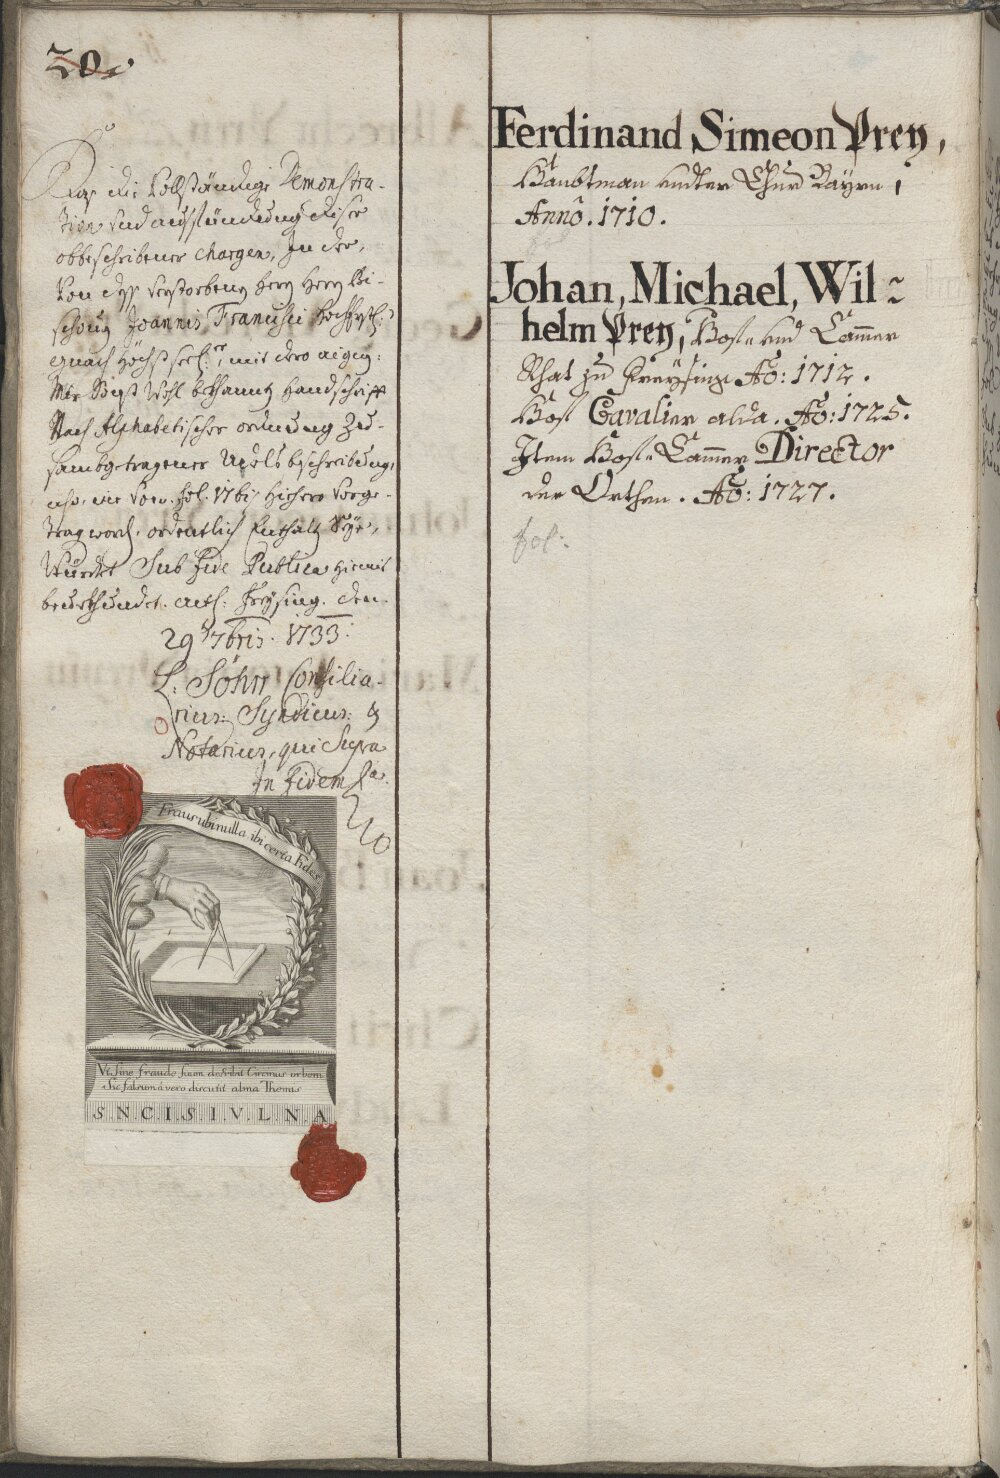 20.
Das die Vollständige Demonstra-
tion und ausständung diser
obbeschribener Chargen, In der,
von dess verstorbenen herrn herrn Bi-
schoven Joannis Francisci Hochfrstl:
gnad: Höchst seel:, mit dero aigen:
Mir Best Wohl bekhannt handschrifft
Nach Alphabetischer ordnung Zu-
samb getragener Adels beschreibung,
fol. 176
Tragword. ordentlich Enthalten seye,
Würdet Sub Fide Publica hiemit
beurkhundet. Act: Freysing. den
29 7bris. 1733.
L. Söhn Consilia-
rius: Syndicus: &
Notarius, qui Supra
In Fidem
Fraus ubi nulla ibi certa Fides
Vt sine fraude suum describit Circinus orbem
Sic falsum à vero discutit alma Themis
S. N. C. I. S. I. V. L. N. A
Ferdinand Simeon Prey,
Haubtman undter Chur Bayrn
Anno. 1710.
Johan, Michael, Wil~
helm Prey, Hof- und Cammer
Rhat zu Freysing Ao: 1712.
Hof Cavalier alda. Ao: 1725.
Item Hof-Cammer Director
der Orthen. Ao: 1727.
fol: